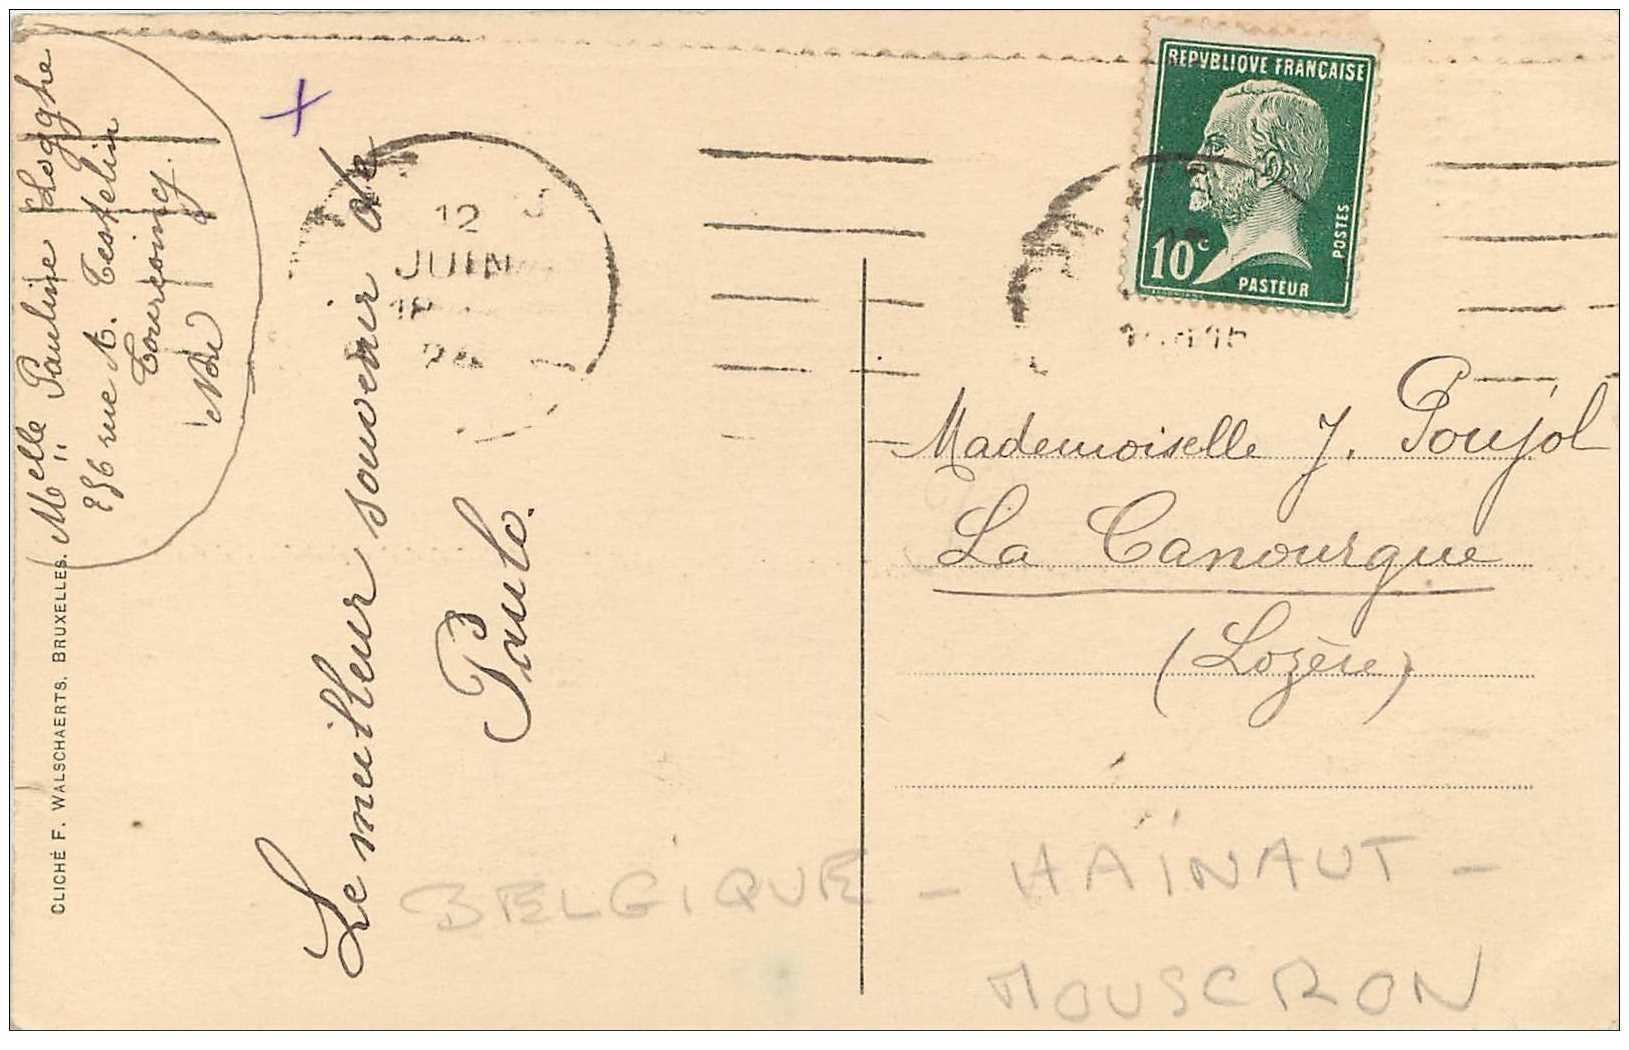 Melle Pauline Logghe
256 rue A. Testelin
Tourcoing
Nord
CLICHÉ F. WALSCHAERTS, BRUXELLES.
Le meilleur souvenir de
Paule.
12
JUIN
REPVBLIQVE FRANÇAISE
10c
POSTES
PASTEUR
Mademoiselle J. Poujol
La Canourgue
(Lozère)
BELGIQUE - HAÏNAUT -
MOUSCRON